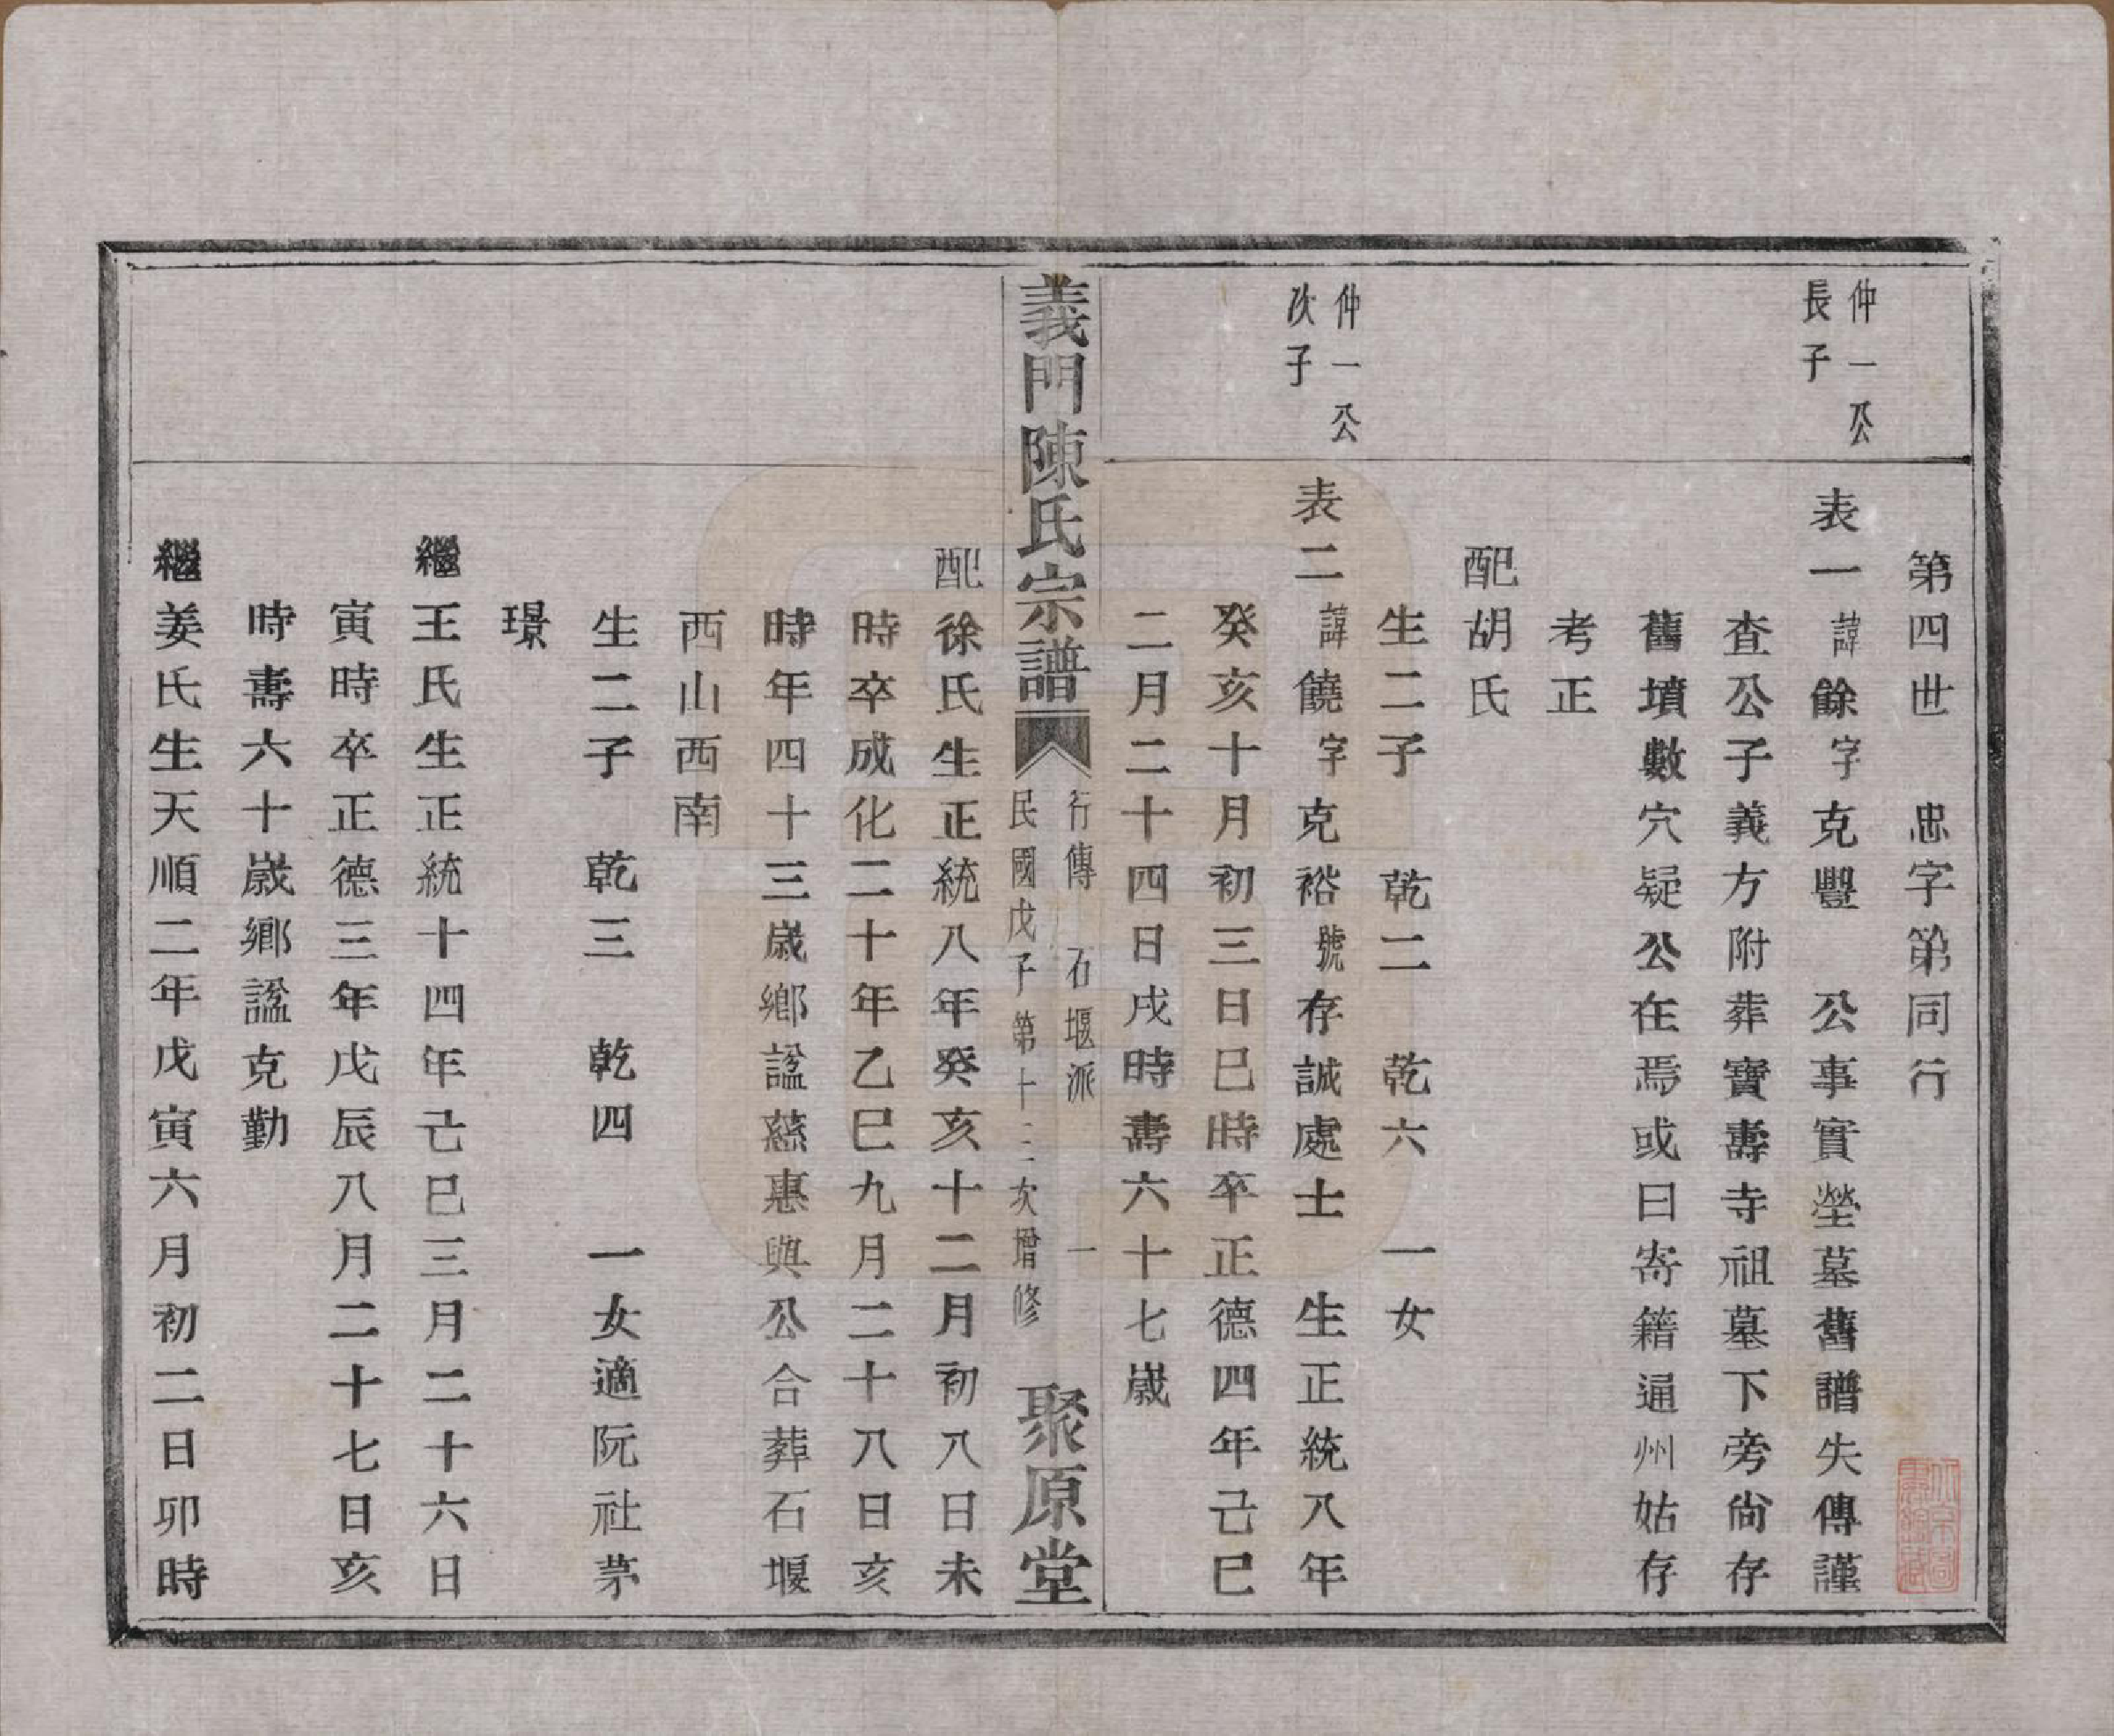 第四世　忠字第同行
仲一公
長子
表一諱餘字克豐　公事實塋墓舊譜失傳謹
查公子義方附葬寶壽寺祖墓下旁尙存
舊墳數穴疑公在焉或曰寄籍通州姑存
考正
配胡氏
生二子　乾二　乾六　一女
仲一公
次子
表二諱饒字克裕號存誠處士　生正統八年
癸亥十月初三日巳時卒正德四年己巳
二月二十四日戌時壽六十七歲
義門陳氏宗譜
行傳　石堰派　一
民國戊子第十三次增修
聚原堂
配徐氏生正統八年癸亥十二月初八日未
時卒成化二十年乙巳九月二十八日亥
時年四十三歲鄉諡慈惠與公合葬石堰
西山西南
生二子　乾三　乾四　一女適阮社茅
璟
繼王氏生正統十四年己巳三月二十六日
寅時卒正德三年戊辰八月二十七日亥
時壽六十歲鄉諡克勤
繼姜氏生天順二年戊寅六月初二日卯時